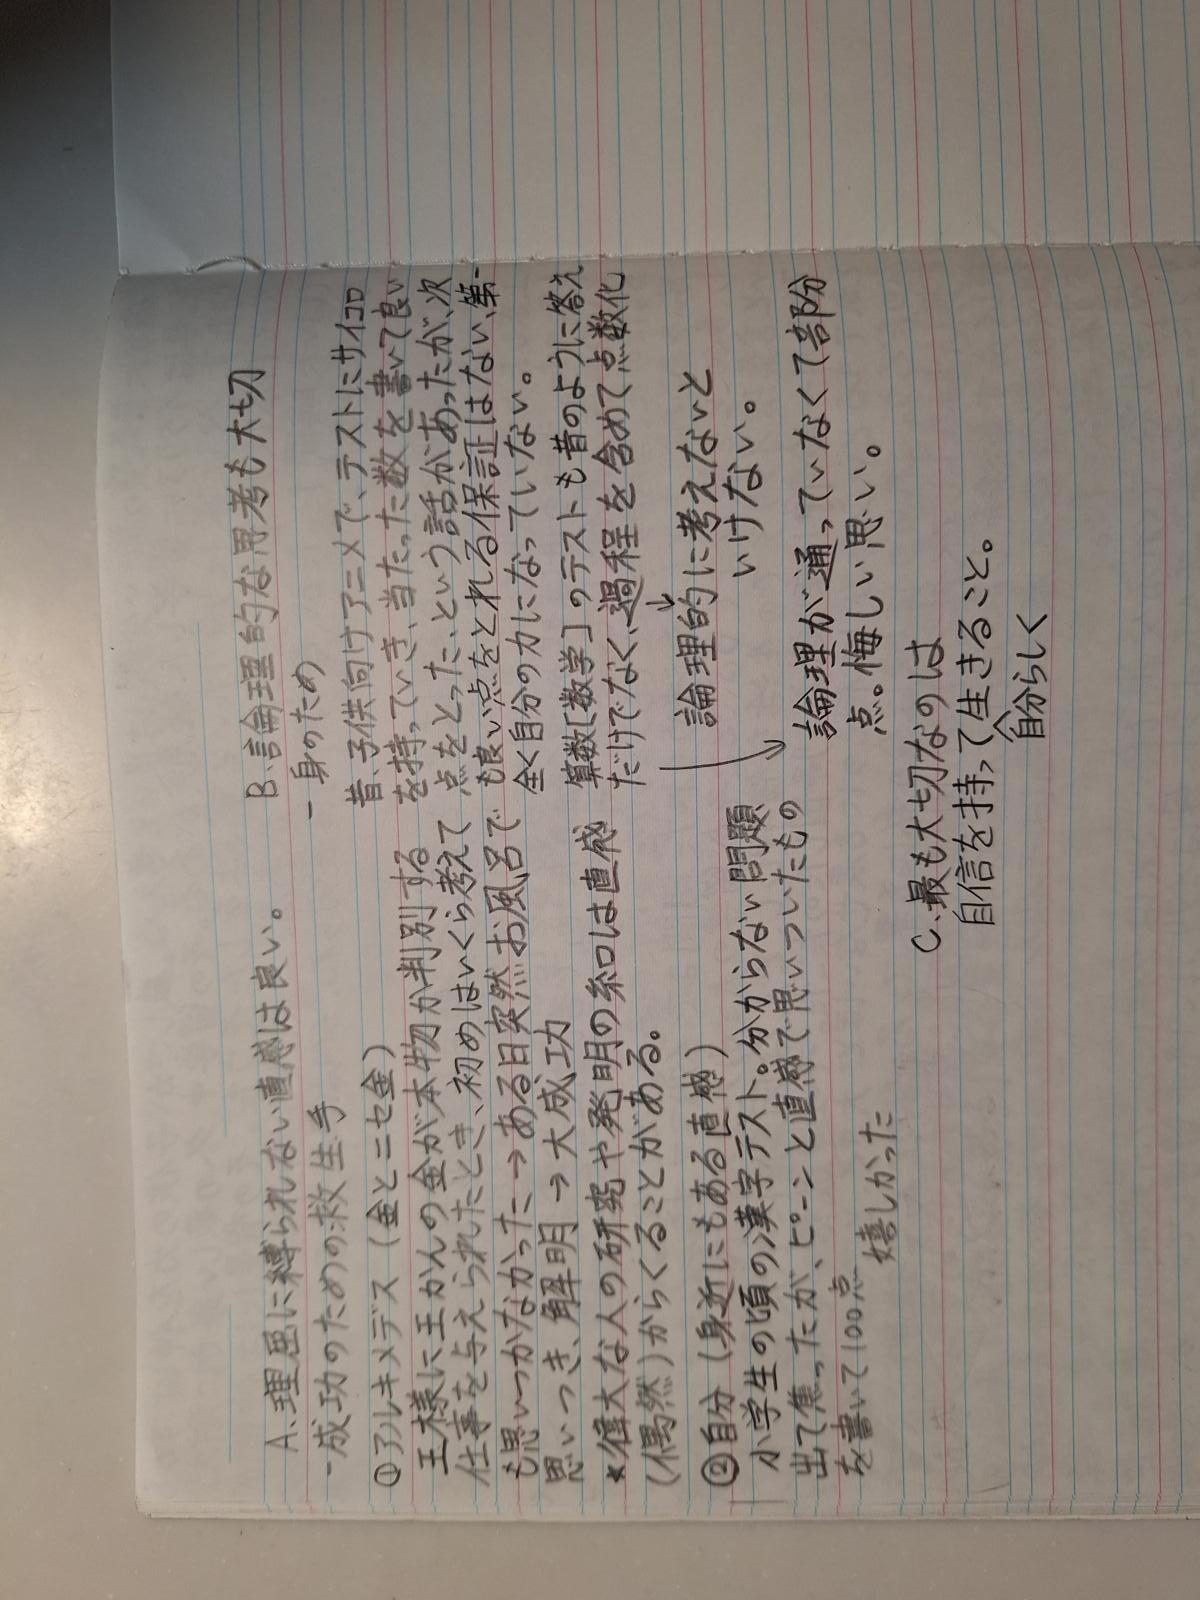 A.理屈に縛られない直感は良い。
-成功のための救生手
①アルキメデス(金とニセ金)
王様に王かんの金が本物か判別する
仕事を与えられたとき、初めはいくら考えて
も思いつかなかった→ある日突然お風呂で
思いつき、解明→大成功
*偉大な人の研究や発明の糸口は直感
(偶然)からくることがある。
②自分(身近にもある直感)
小学生の頃の漢字テスト。分からない問題
出て焦ったが、ピーンと直感で思いついたもの
を書いて100点
嬉しかった
B.論理的な思考も大切
-身のため
昔、子供向けアニメで、テストにサイコロ
を持っていき、当たった数を書いて良い
点をとった、という話があったが、次
も良い点をとれる保証はない、第一
全く自分の力になっていない。
算数[数学]のテストも昔のように答え
だけでなく、過程を含めて点数化
↓
論理的に考えないと
いけない。
論理が通っていなくて部分
点。悔しい思い。
C.最も大切なのは
自信を持って生きること。
自分らしく